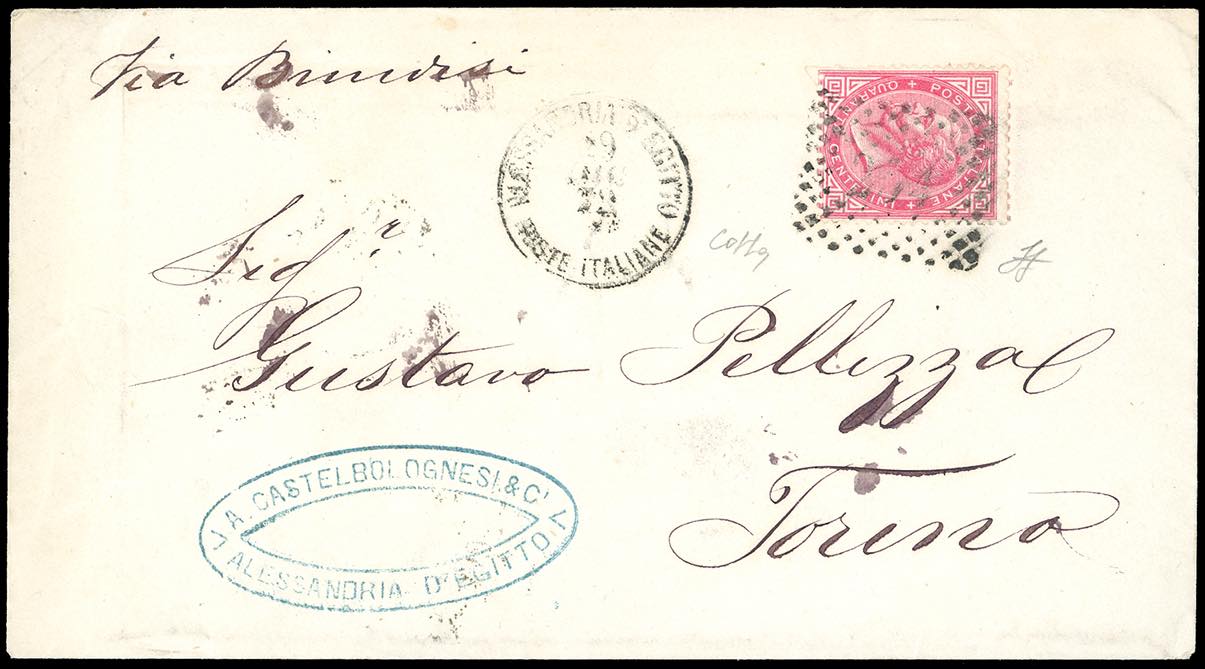 Via Brindisi
ALESSANDRIA D'EGITTO
19
POSTE ITALIANE
POSTE ITALIANE
QUARANTA CENTESIMI
234
Sigr
Gustavo Pellizza
Torino
A. CASTELBOLOGNESI & Ci
ALESSANDRIA D'EGITTO